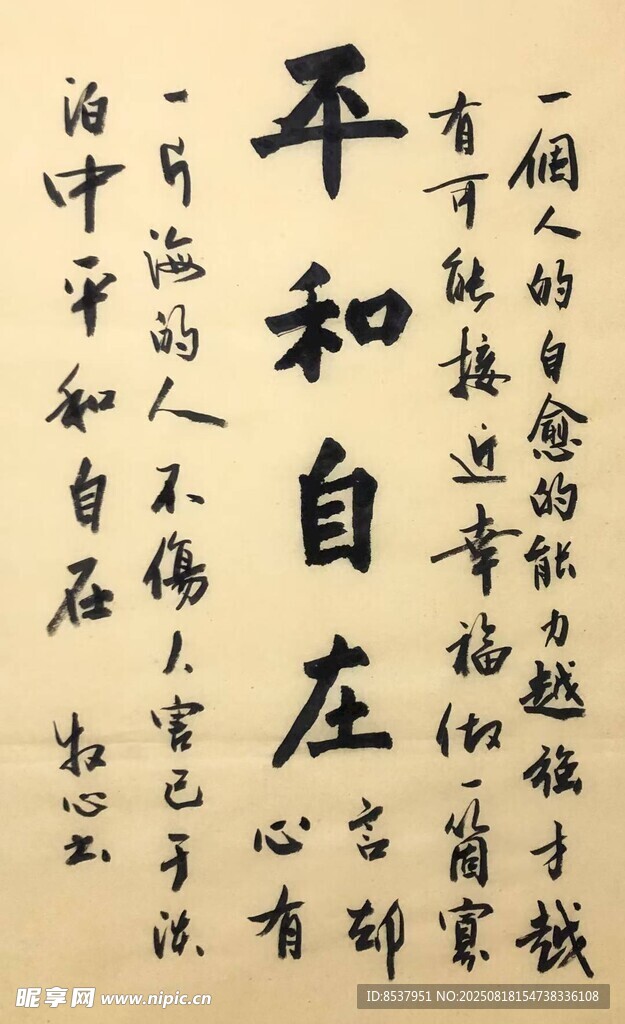 一個人的自愈的能力越强才越
有可能接近幸福做一箇寡
平和自在
言却
心有
一片海的人不傷人害己于淡
泊中平和自在
牧心书
昵享网 www.nipic.cn
ID:8537951 NO:20250818154738336108